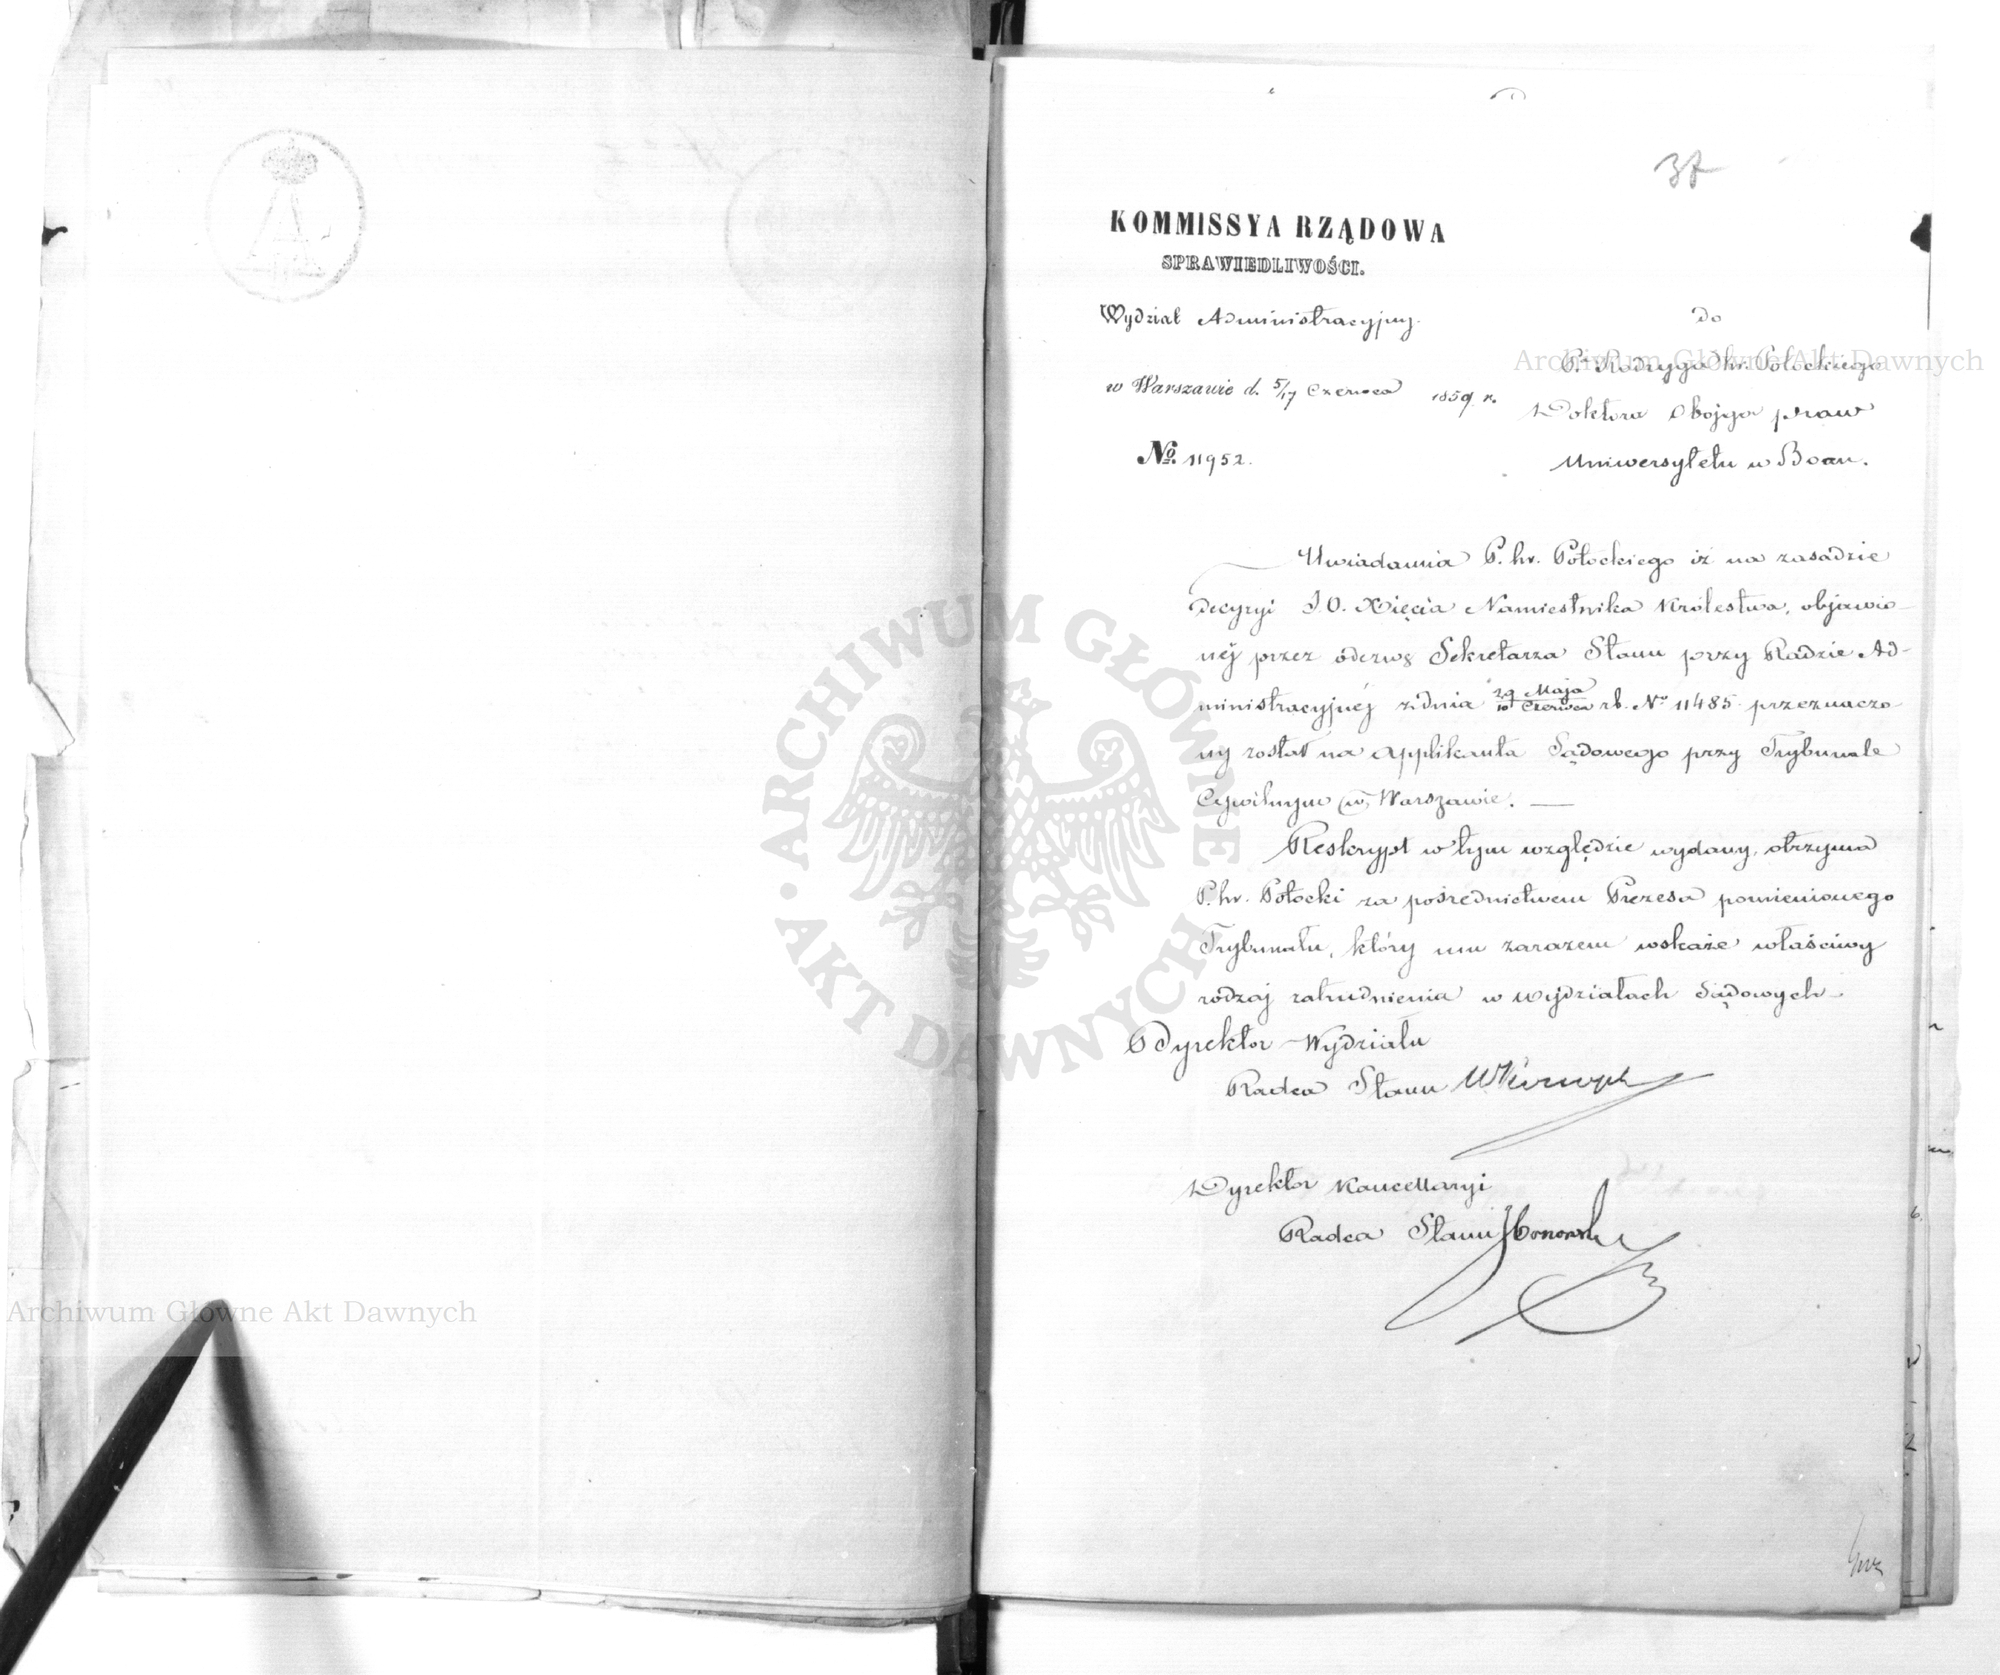 37
KOMMISSYA RZĄDOWA
SPRAWIEDLIWOŚCI.
Wydział Administracyjny.
w Warszawie d. 5/17 Czerwca 1859 r.
No. 11952.
do
P. Rodryga hr. Potockiego
Doktora Obojga praw
Uniwersytetu w Bonn.
Uwiadamia P. hr. Potockiego iż na zasadzie
decyzyi J. O. Xięcia Namiestnika Królestwa, objawio-
nej przez odezwę Sekretarza Stanu przy Radzie Ad-
ministracyjnéj z dnia 29 Maja/10 Czerwca r.b. No 11485 przeznaczo-
ny został na Applikanta Sądowego przy Trybunale
Cywilnym w Warszawie. —
Reskrypt w tym względzie wydany, otrzyma
P. hr. Potocki za pośrednictwem Prezesa pomienionego
Trybunału, który mu zarazem wskaże właściwy
rodzaj zatrudnienia w wydziałach Sądowych –
Dyrektor Wydziału
Radca Stanu
Dyrektor Kancellaryi
Radca Stanu
Archiwum Główne Akt Dawnych
Archiwum Główne Akt Dawnych
ARCHIWUM GŁÓWNE · AKT DAWNYCH